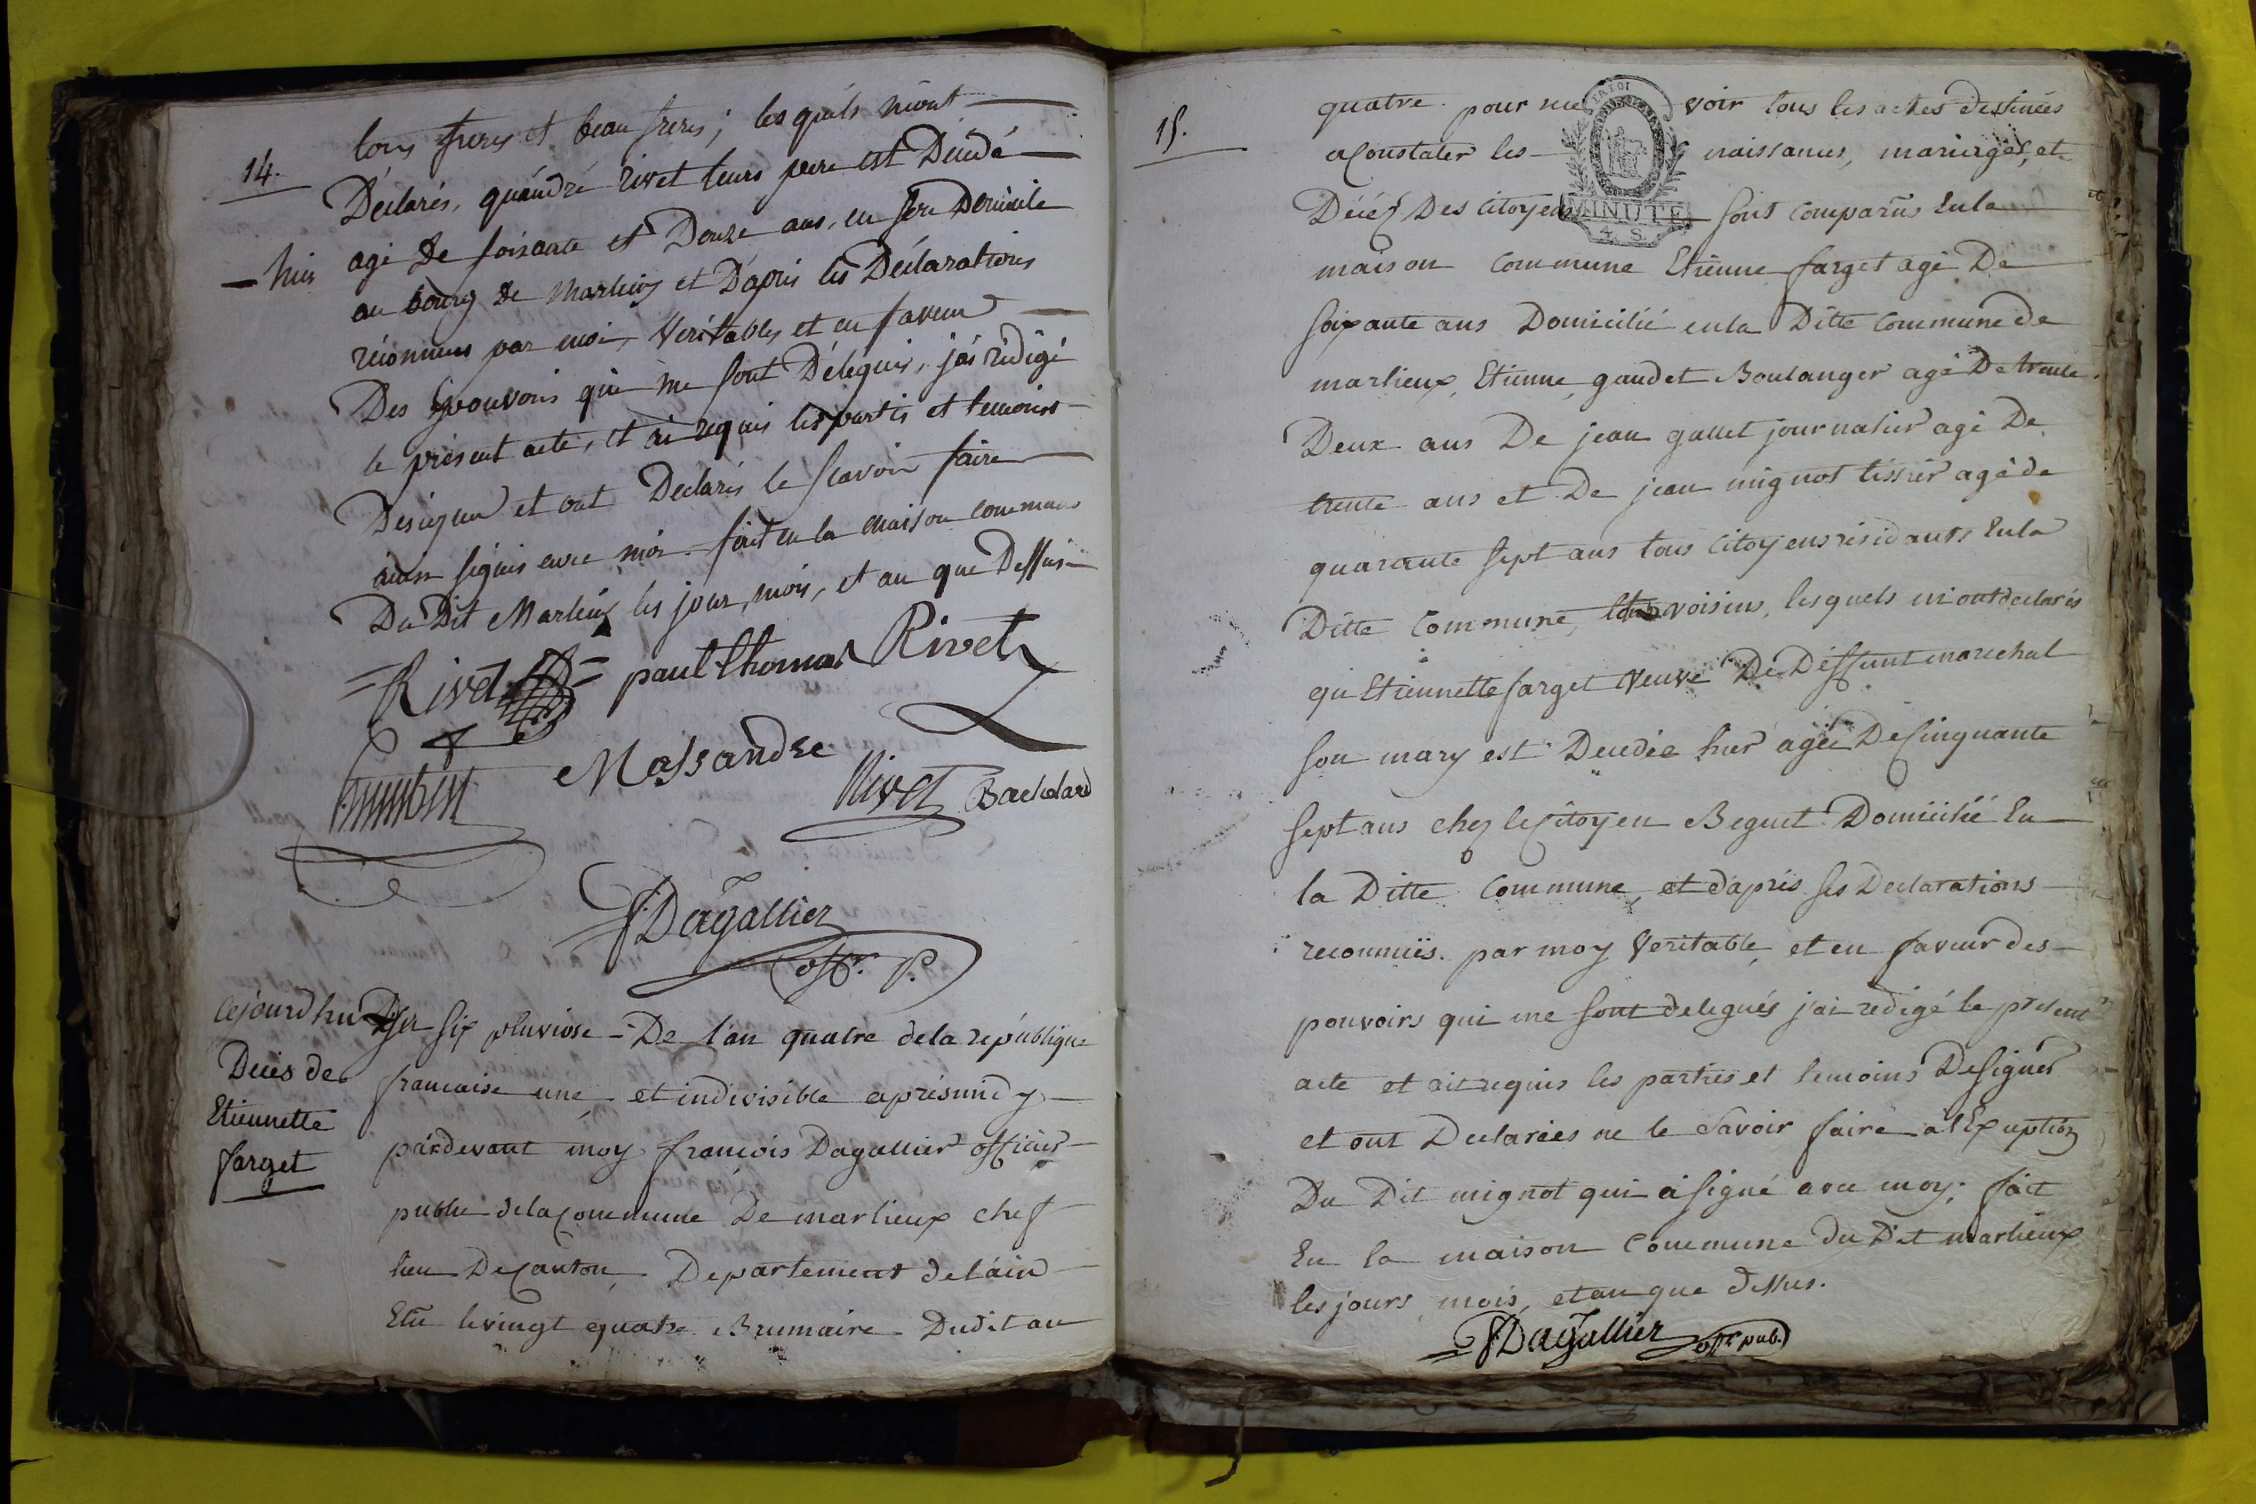 14.
tous freres et beau freres; les quels m'ont
Déclarés, qu'andré rivet leurs pere est Décédé
hier
agé de soisante et Douze ans, en son Domicile
au bourg de Marlieux et D'apris les Déclarations
réconnues par moi, Véritables et en faveur
Des pouvoirs qui me sont Délegués, j'ai rédigé
le présent acte, et ai requis les partis et temoins
Designer et ont Declarés le scavoir faire
ainsi signés avec moi. fait en la maison commune
Du Dit Marlieux les jour, mois, et an que Dessus
Rivet paul thomas Rivet
humbert Massandre Rivet Bachelard
F Dagallier
offr. P.
Cejourdhui six pluviose De l'an quatre de la république
Decès de
Etiennette
farget
francaise une et indivisible aprésmidy
pardevant moy françois Dagallier officier
public de la Commune De marlieux chef
lieu De Canton Departement de l'ain
Elu le vingt quatre Brumaire Dudit an
15.
quatre pour re voir tous les actes destinées
a Constater les naissances, mariages, et
Décéz Des Citoyens sont Comparus En la
MINUTE
4. S.
maison Commune Etienne farget agé De
soixante ans Domicilié en la Ditte Commune de
marlieux, Etienne gaudet Boulanger agé De trente
Deux ans De jean gallet journalier agé De
trente ans et De jean mignot tissier agé de
quarante sept ans tous Citoyens résidants En la
Ditte Commune, voisins, lesquels m'ont declarés
qu'Etiennette farget Veuve De Deffunt marechal
son mary est Decedée hier agée De Cinquante
sept ans chez le Citoyen Beguet Domicilié En
la Ditte Commune, et d'aprés ses Declarations
reconnuës par moy Veritable, et en faveur des
pouvoirs qui me sont delegués j'ai redigé le présent
acte et ait requis les parties et temoins De signer
et ont Declarées ne le Savoir faire à l'Exception
Du Dit mignot qui a signé avec moy; fait
En la maison Commune du Dit marlieux
les jours mois, et an que dessus.
F Dagallier offr pub.